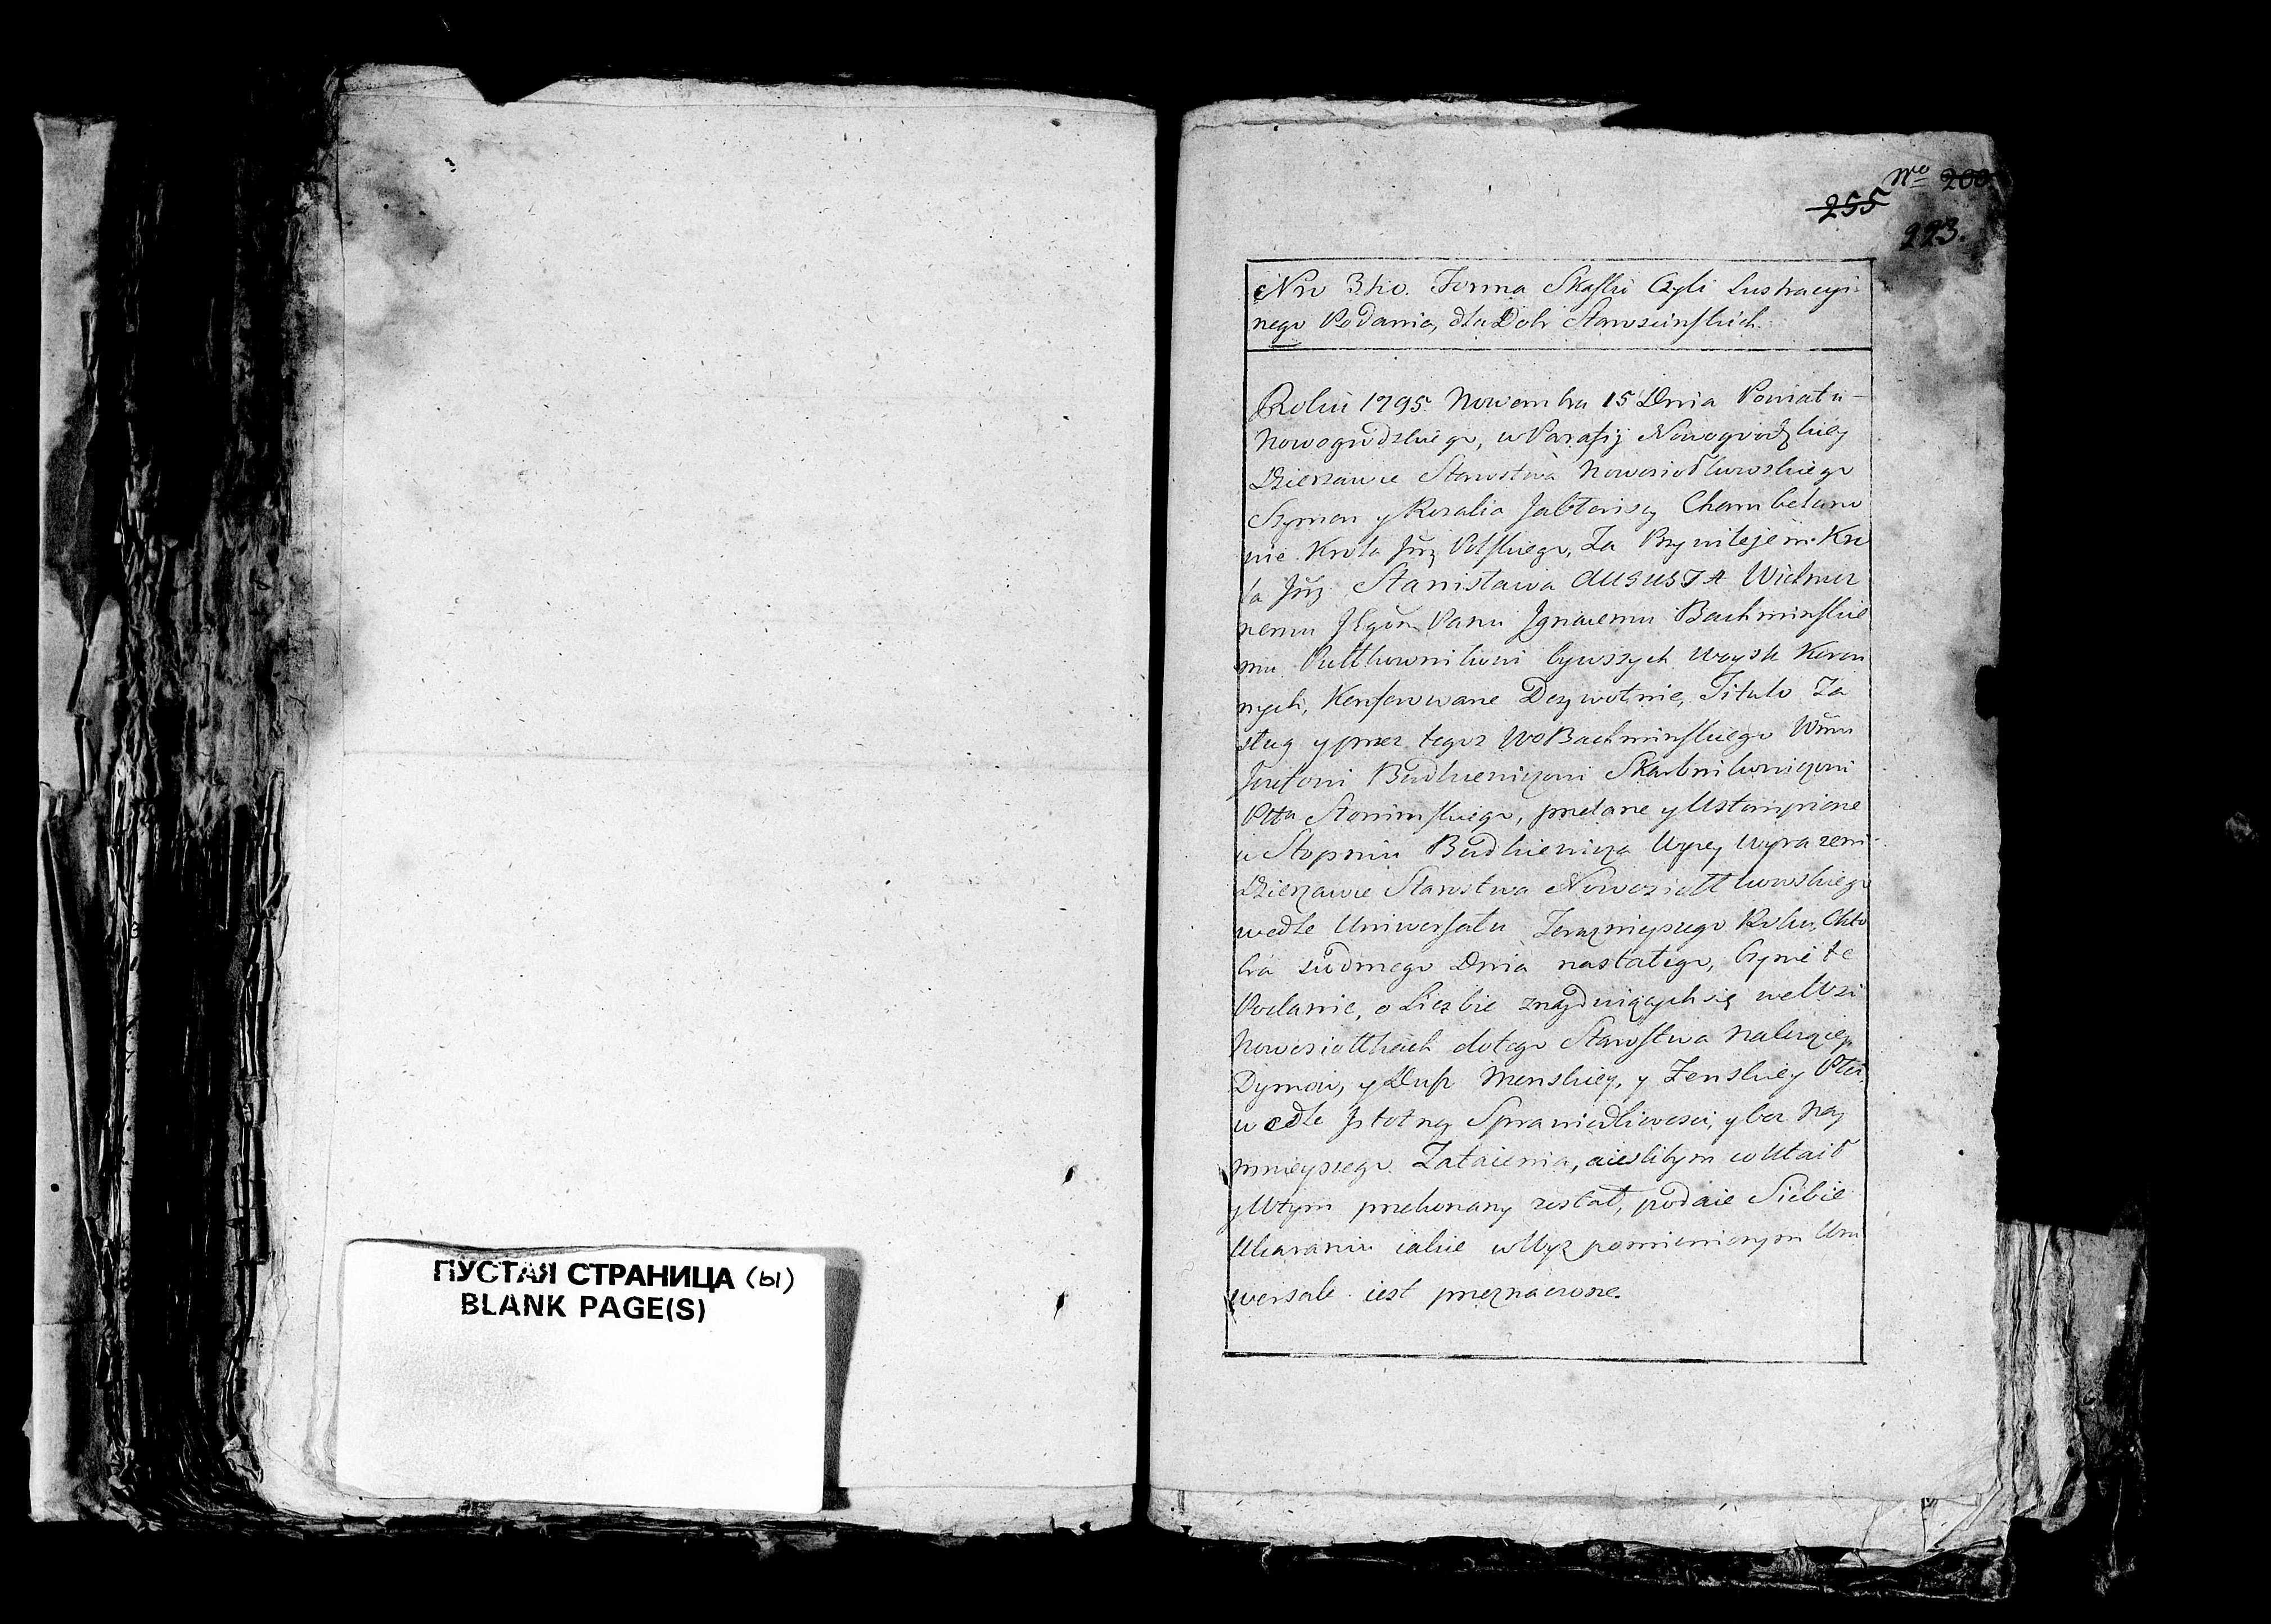 Nro 200
255
223.
Nro 3tio. Forma Skaſki Czyli Lustracyi:
nego Podania, dla Dobr Starościnſkich.
Roku 1795 Nowembra 15 Dnia Powiatu –
Nowogrodzkiego, w Parafij Nowogrodzkiey
Dzierzawie Starostwa Nowosiodłkowskiego
Szymon y Rozalia Chambelano
wie Krola Jmci Polſkiego, Za Przywilejem Kro
la Jmci Stanisława AUGUSTA Wielmoz
nemu Panu Ignacemu Bachminſkie
mu Pułkownikowi bywszych Woysk Koron
nych, Konferowane Dozywotnie, Titulo Za
sług y przez tegoz WoBachminſkiego Wmu
Jozefowi Budkiewiczowi Skarbnikowiczowi
Pttu Słonimſkiego, przelane y Ustompione
w Stopniu Budkiewicza Wyzey wyrazeni
Dzierzawie Starostwa Nowosiołkowskiego
wedle Uniwerſału Terazniejszego Roku, Okto
bra siodmego Dnia nastałego, czynie te
Podanie, o Liczbie znayduiących się we Wsi
Nowosiołkach do tego Staroſtwa nalezącey
Dymow, y Dusz Menskiey, y Zenskiey Płci,
wedle Jstotney Sprawiedliwosci, y bez Nay
mnieyszego Zataienia, a ieslibym co Utaił
y Wtym przekonany został, podaie Siebie
Ukaraniu iakie w Wyz pomienionym Uni
wersale iest przeznaczone.
ПУСТАЯ СТРАНИЦА (Ы)
BLANK PAGE(S)